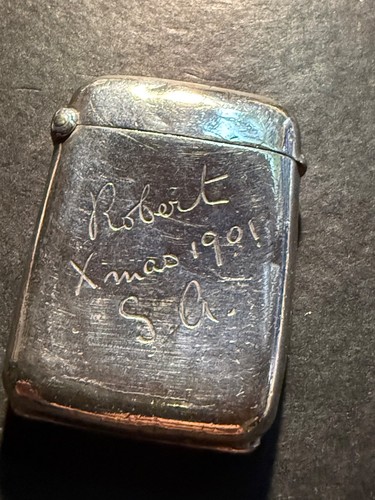 Robert
Xmas 1901
S.A.